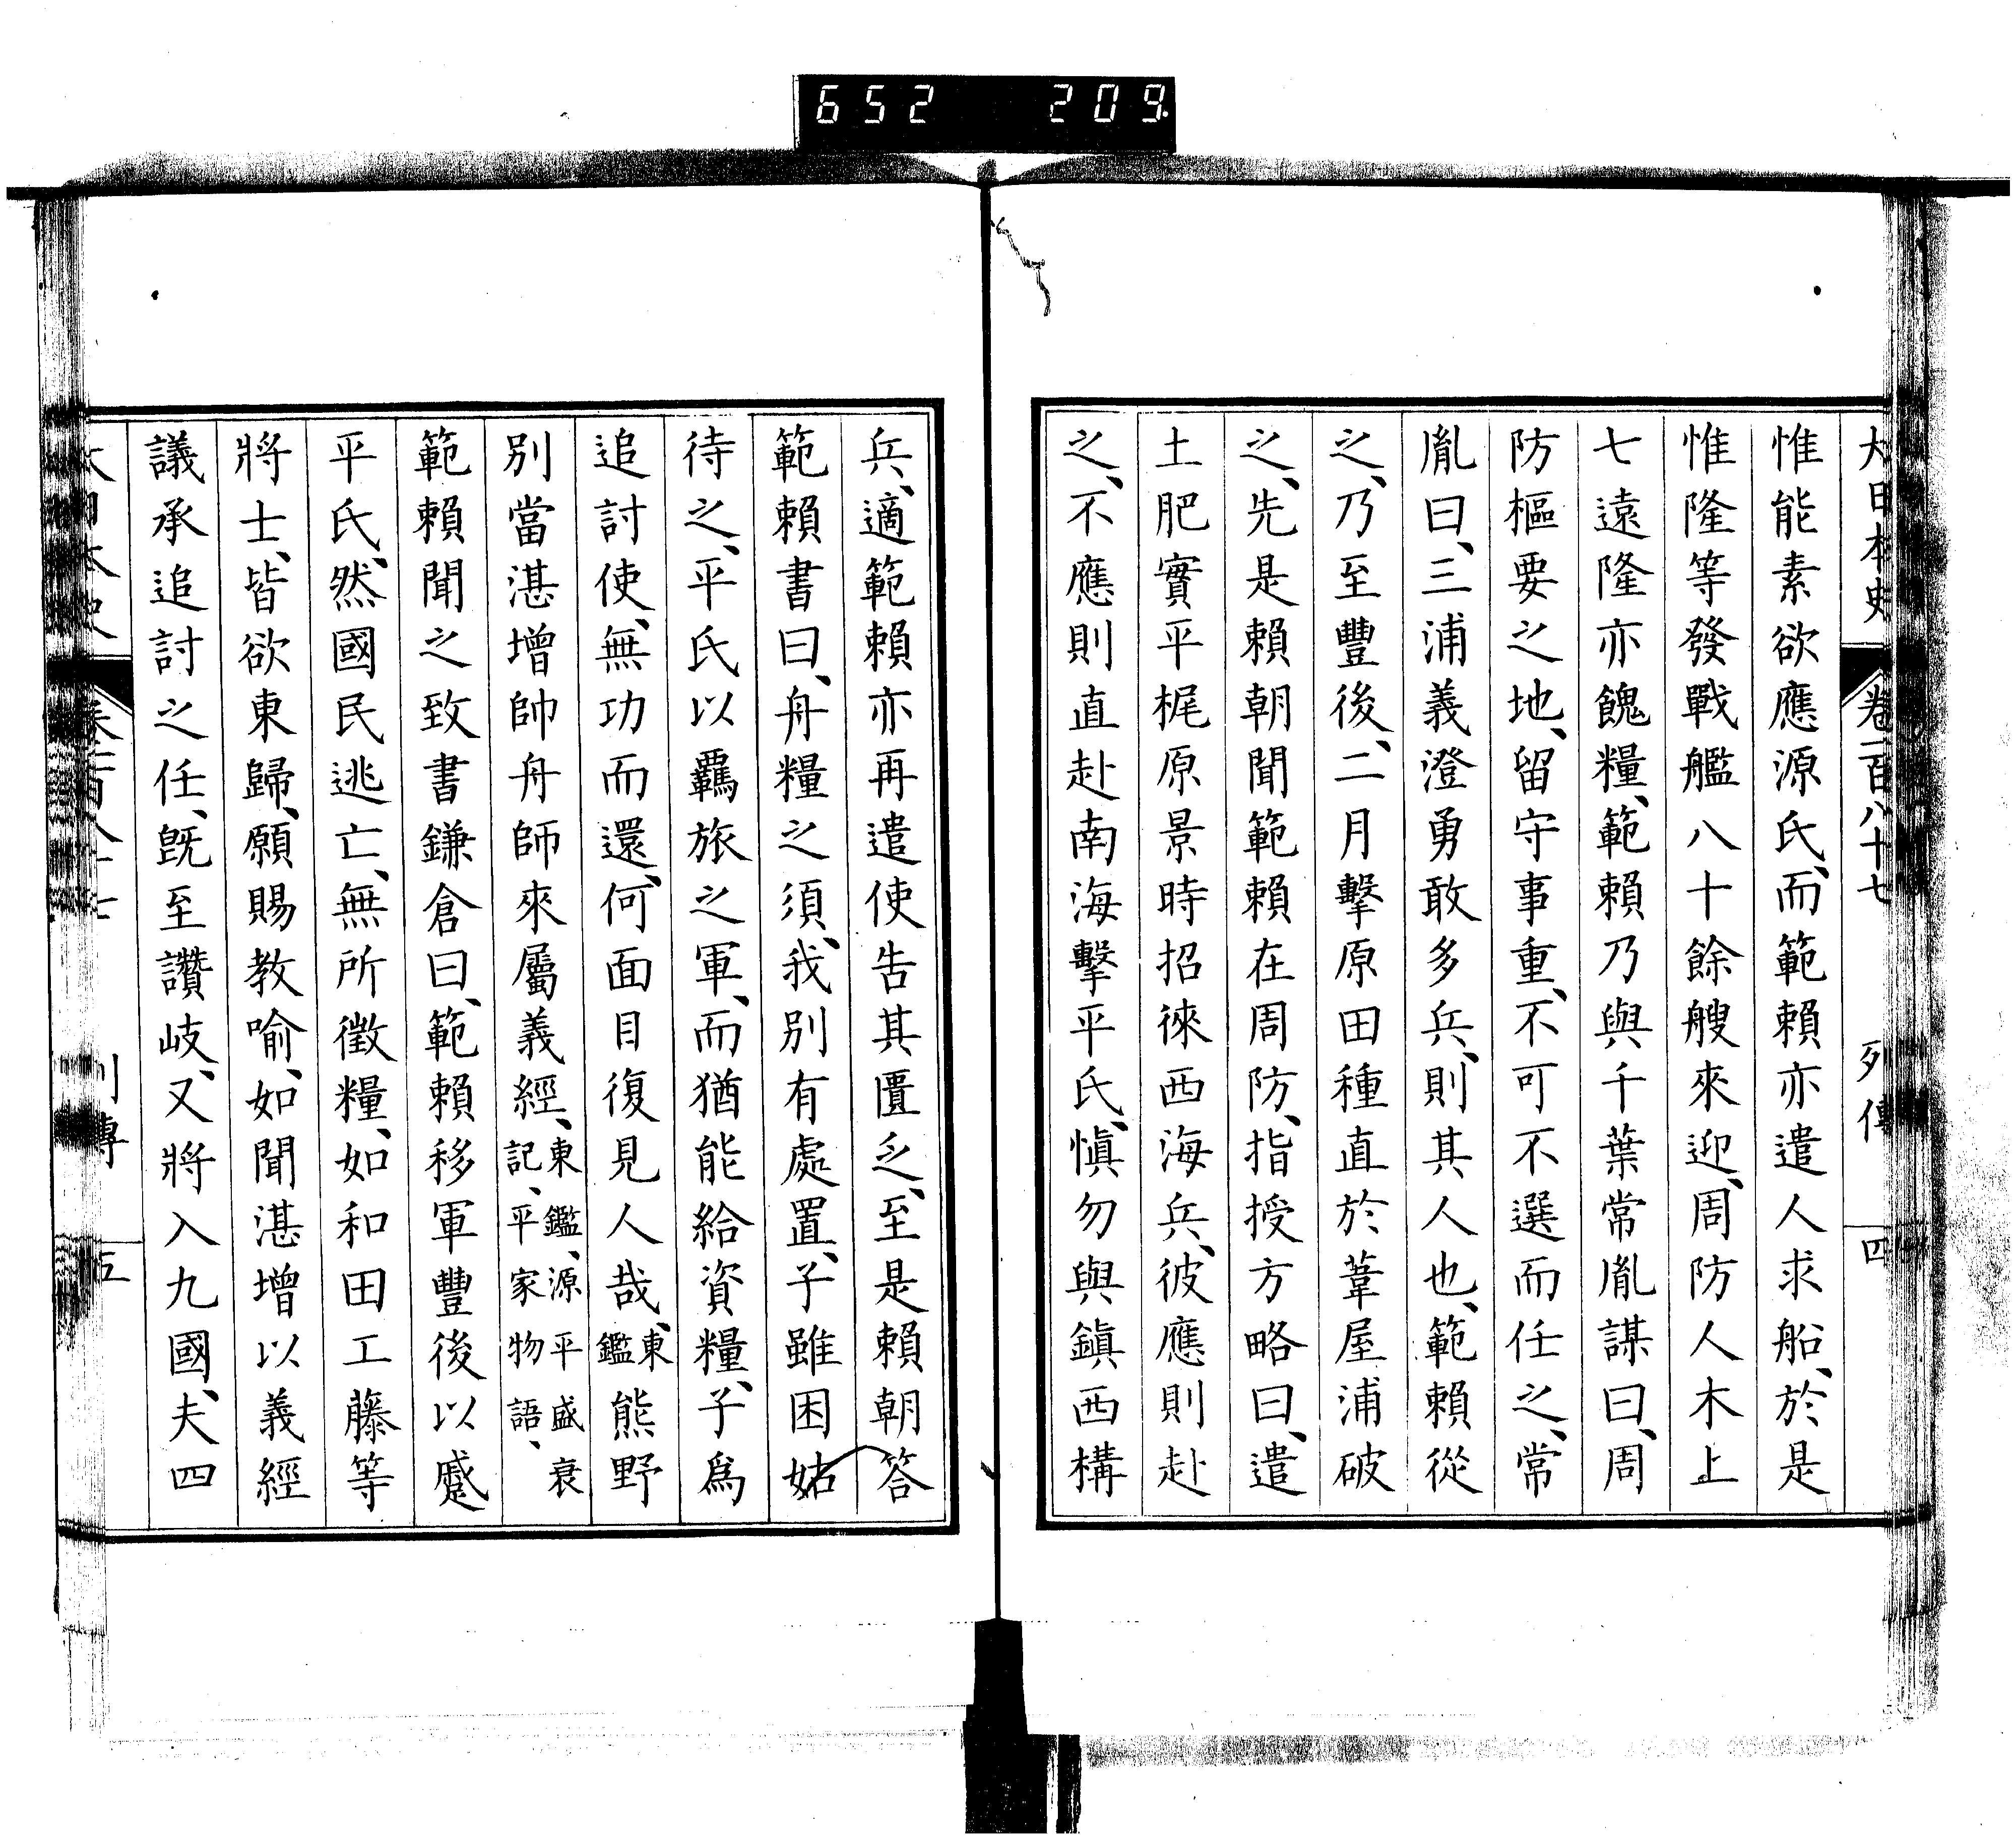 652 209
大日本史 卷一百八十七 列傳 四
惟能素欲應源氏、而範賴亦遣人求船、於是
惟隆等發戰艦八十餘艘來迎、周防人木上
七遠隆亦餽糧、範賴乃與千葉常胤謀曰、周
防樞要之地、留守事重、不可不選而任之、常
胤曰、三浦義澄勇敢多兵、則其人也、範賴從
之、乃至豐後、二月擊原田種直於葦屋浦破
之、先是賴朝聞範賴在周防、指授方略曰、遣
土肥實平梶原景時招徠西海兵、彼應則赴
之、不應則直赴南海擊平氏、愼勿與鎭西構
兵、適範賴亦再遣使告其匱乏、至是賴朝答
範賴書曰、舟糧之須、我別有處置、子雖困姑
待之、平氏以羈旅之軍、而猶能給資糧、子爲
追討使、無功而還、何面目復見人哉、東鑑、熊野
別當湛增帥舟師來屬義經、東鑑、源平盛衰記、平家物語、
範賴聞之致書鎌倉曰、範賴移軍豐後以蹙
平氏、然國民逃亡、無所徵糧、如和田工藤等
將士、皆欲東歸、願賜教喻、如聞湛增以義經
議承追討之任、旣至讚岐、又將入九國、夫四
大日本史 卷一百八十七 列傳 五